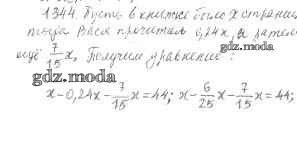 1344. Пусть в книжке было x страниц
тогда Вася прочитал 0,24x, а затем
ещё 7/15 x. Получим уравнение:
gdz.moda
gdz.moda
x-0,24x-7/15x=44; x-6/25x-7/15x=44;